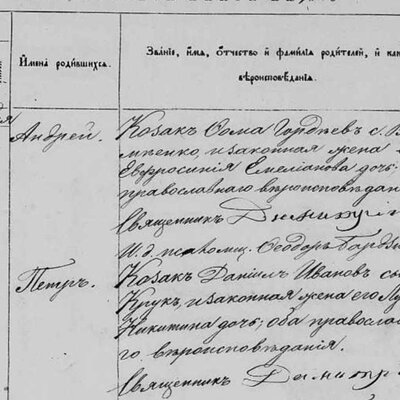 Имена родившихся.
Званіе, имя, отчество и фамилія родителей, и как
вѣроисповѣданія.
Андрей.
Козак Ѳома Гордѣев с. В
мпенко, и законная жена
Евфросинія Емеліанова дочь;
православнаго вѣроисповѣдан
Священник Димитрі
И. д. псаломщ. Ѳеодоръ Гордѣ
Петръ.
Козак Даниил Иванов сы
Крук, и законная жена его
Никитина дочь; оба правосла
го вѣроисповѣданія.
Священник Димитр